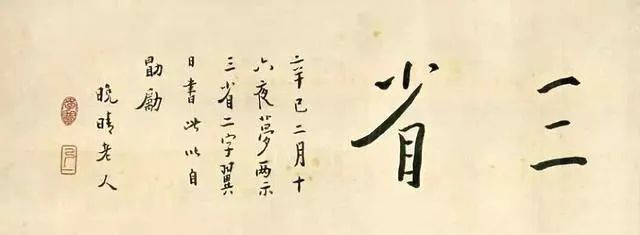 三省
辛巳二月十
六夜夢兩示
三省二字翼
日書此以自
勖勵
晚晴老人